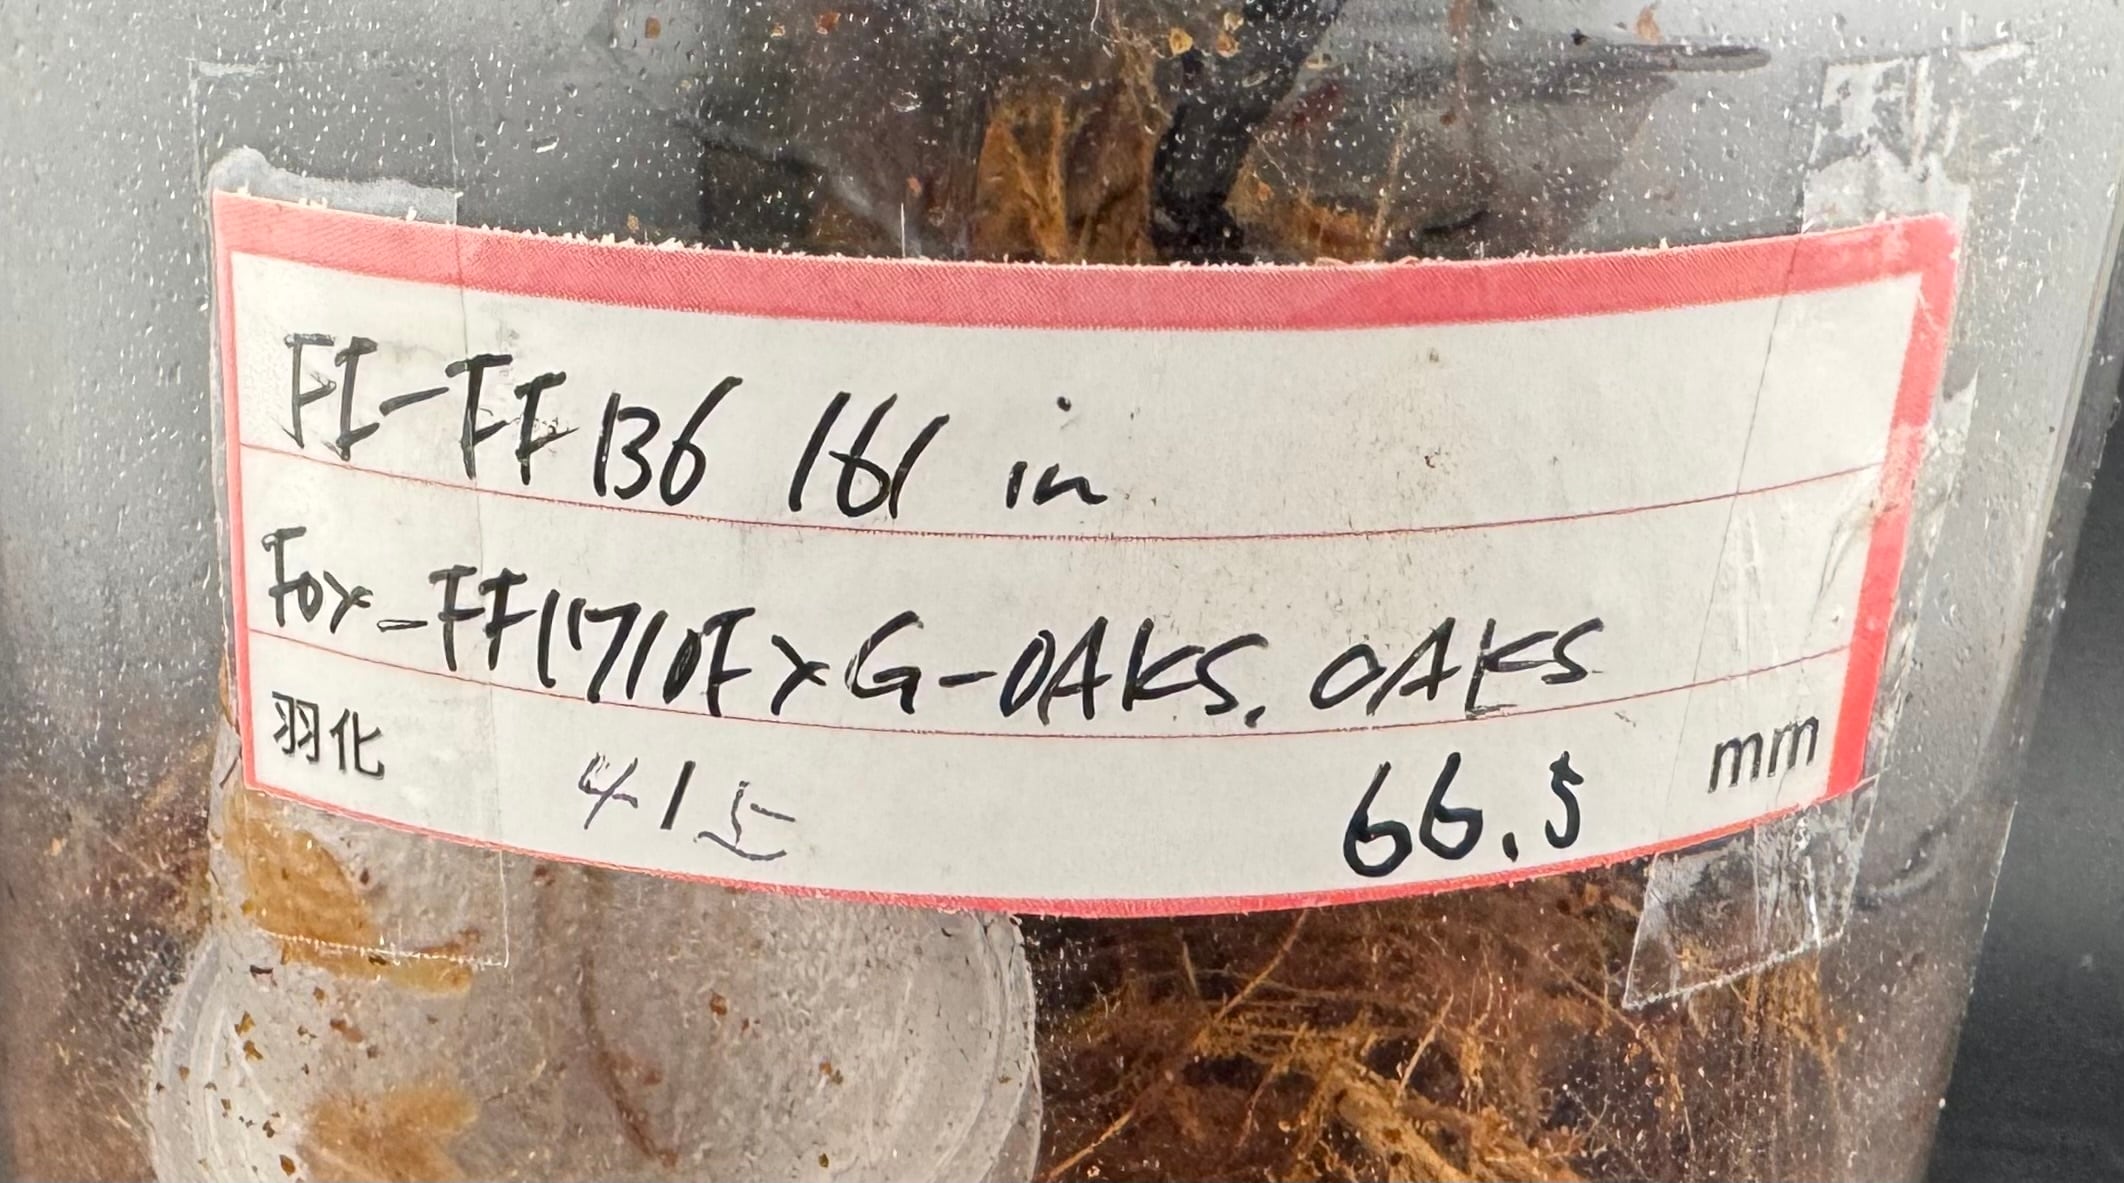 FI-FF 136 161 in
Fox-FF11710F×G-OAKS. OAKS
羽化 4/5 66.5 mm